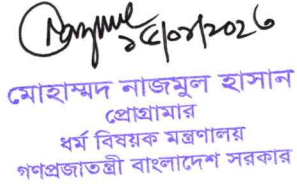 ২৫/০২/২০২৬
মোহাম্মদ নাজমুল হাসান
প্রোগ্রামার
ধর্ম বিষয়ক মন্ত্রণালয়
গণপ্রজাতন্ত্রী বাংলাদেশ সরকার